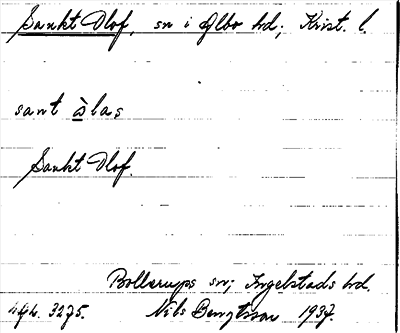 Sankt Olof, sn i Albo hd; Krist. l.
sant àlas
Sankt Olof.
Bollerups sn; Ingelstads hd.
3275. Nils Bengtsson 1937.